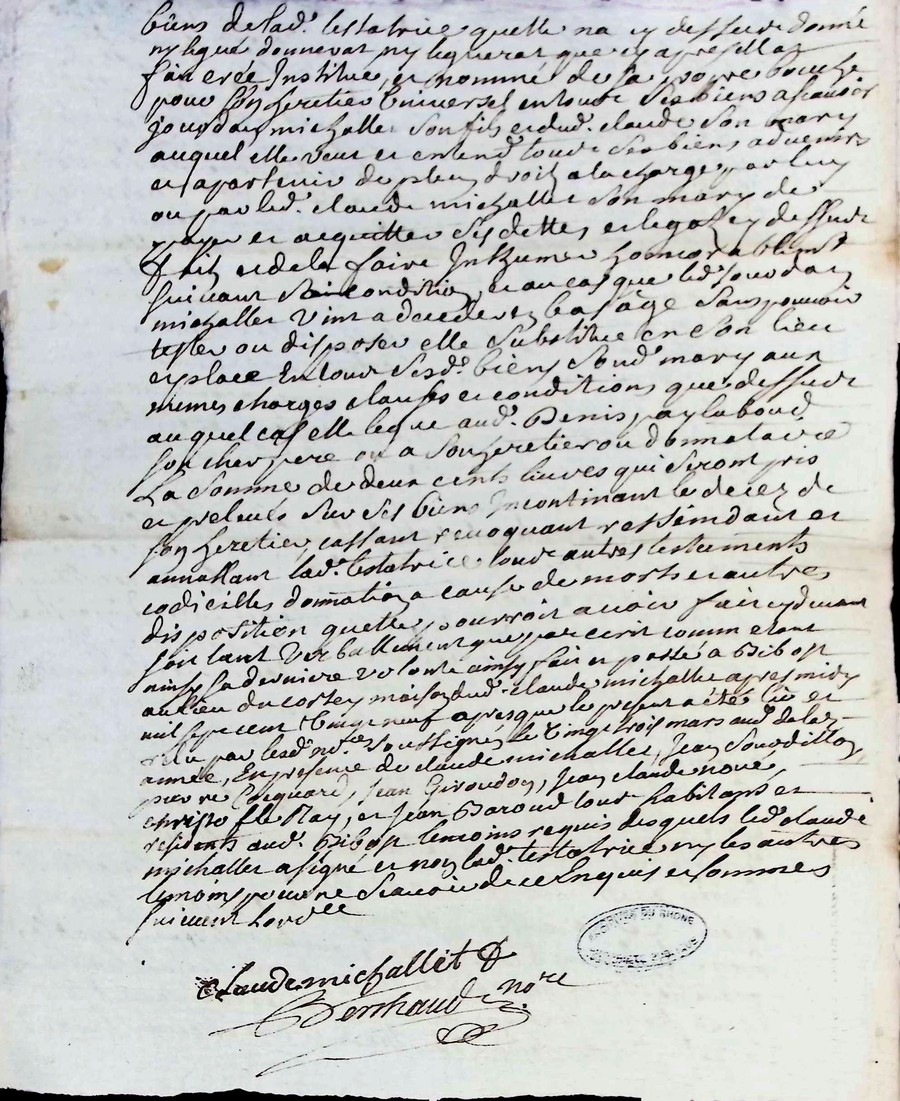 biens de lad.e testatrice quelle na cy dessus donné
ny legué donnerat ny leguerat que cy apres ellat
fait crée Institue, et nomme de sa propre bouche
pour son heretier universel en tous ses biens
jourdan michallet son fils et dud. claude son mary
auquel elle veut et entend tous ses biens advenir
et apartenir de plein droit a la charge par luy
ou par led. claude michallet son mary de
payer et acquitter ses dettes et legat cy dessus
fait et de la faire Inhumer honnorablemt
suivant sa condition, et au cas que led. jourdan
michallet vint a deceder en bas âge sans pouvoir
tester ou disposer elle substitue en son lieu
et place En tous sesd. biens sond. mary aux
mêmes charges clauses et conditions que dessus
auquel cas elle legue aud. Denis paylaboud
son cher pere ou a son heretier ou donnataire
La somme de deux cents livres qui seront pris
et prelevés sur ses biens Incontinant le decez de
son heretier, cassant revoquant ressindant et
annullant lad.e testatrice tous autres testaments
codicilles donnation a cause de morts et autres
disposition quelle pourroit avoir fait cy devant
soit tant verballement que par ecrit comme etant
ainsy sa derniere volonté ainsy fait et passé a Bibost
au lieu du cortey maison dud. claude michallet apres midy
mil sept cent vingt neuf apres que le present a été lû et
relu par led. no.re soussigné, le vingt trois mars aud. de lad.
année, En presence de claude michallet, Jean Sourdillon,
pierre Coquard, Jean Giroudon, Jean claude noué,
christofle Ray, et Jean Baroud tous habitans et
residents aud. Bibost temoins requis desquels led. claude
michallet a signé et non lad.e testatrice ny les autres
temoins pour ne scavoir de ce Enquis et sommés
suivant Lord.ce
claude michallet
Berthaud no.re
ARCHIVES DU RHONE